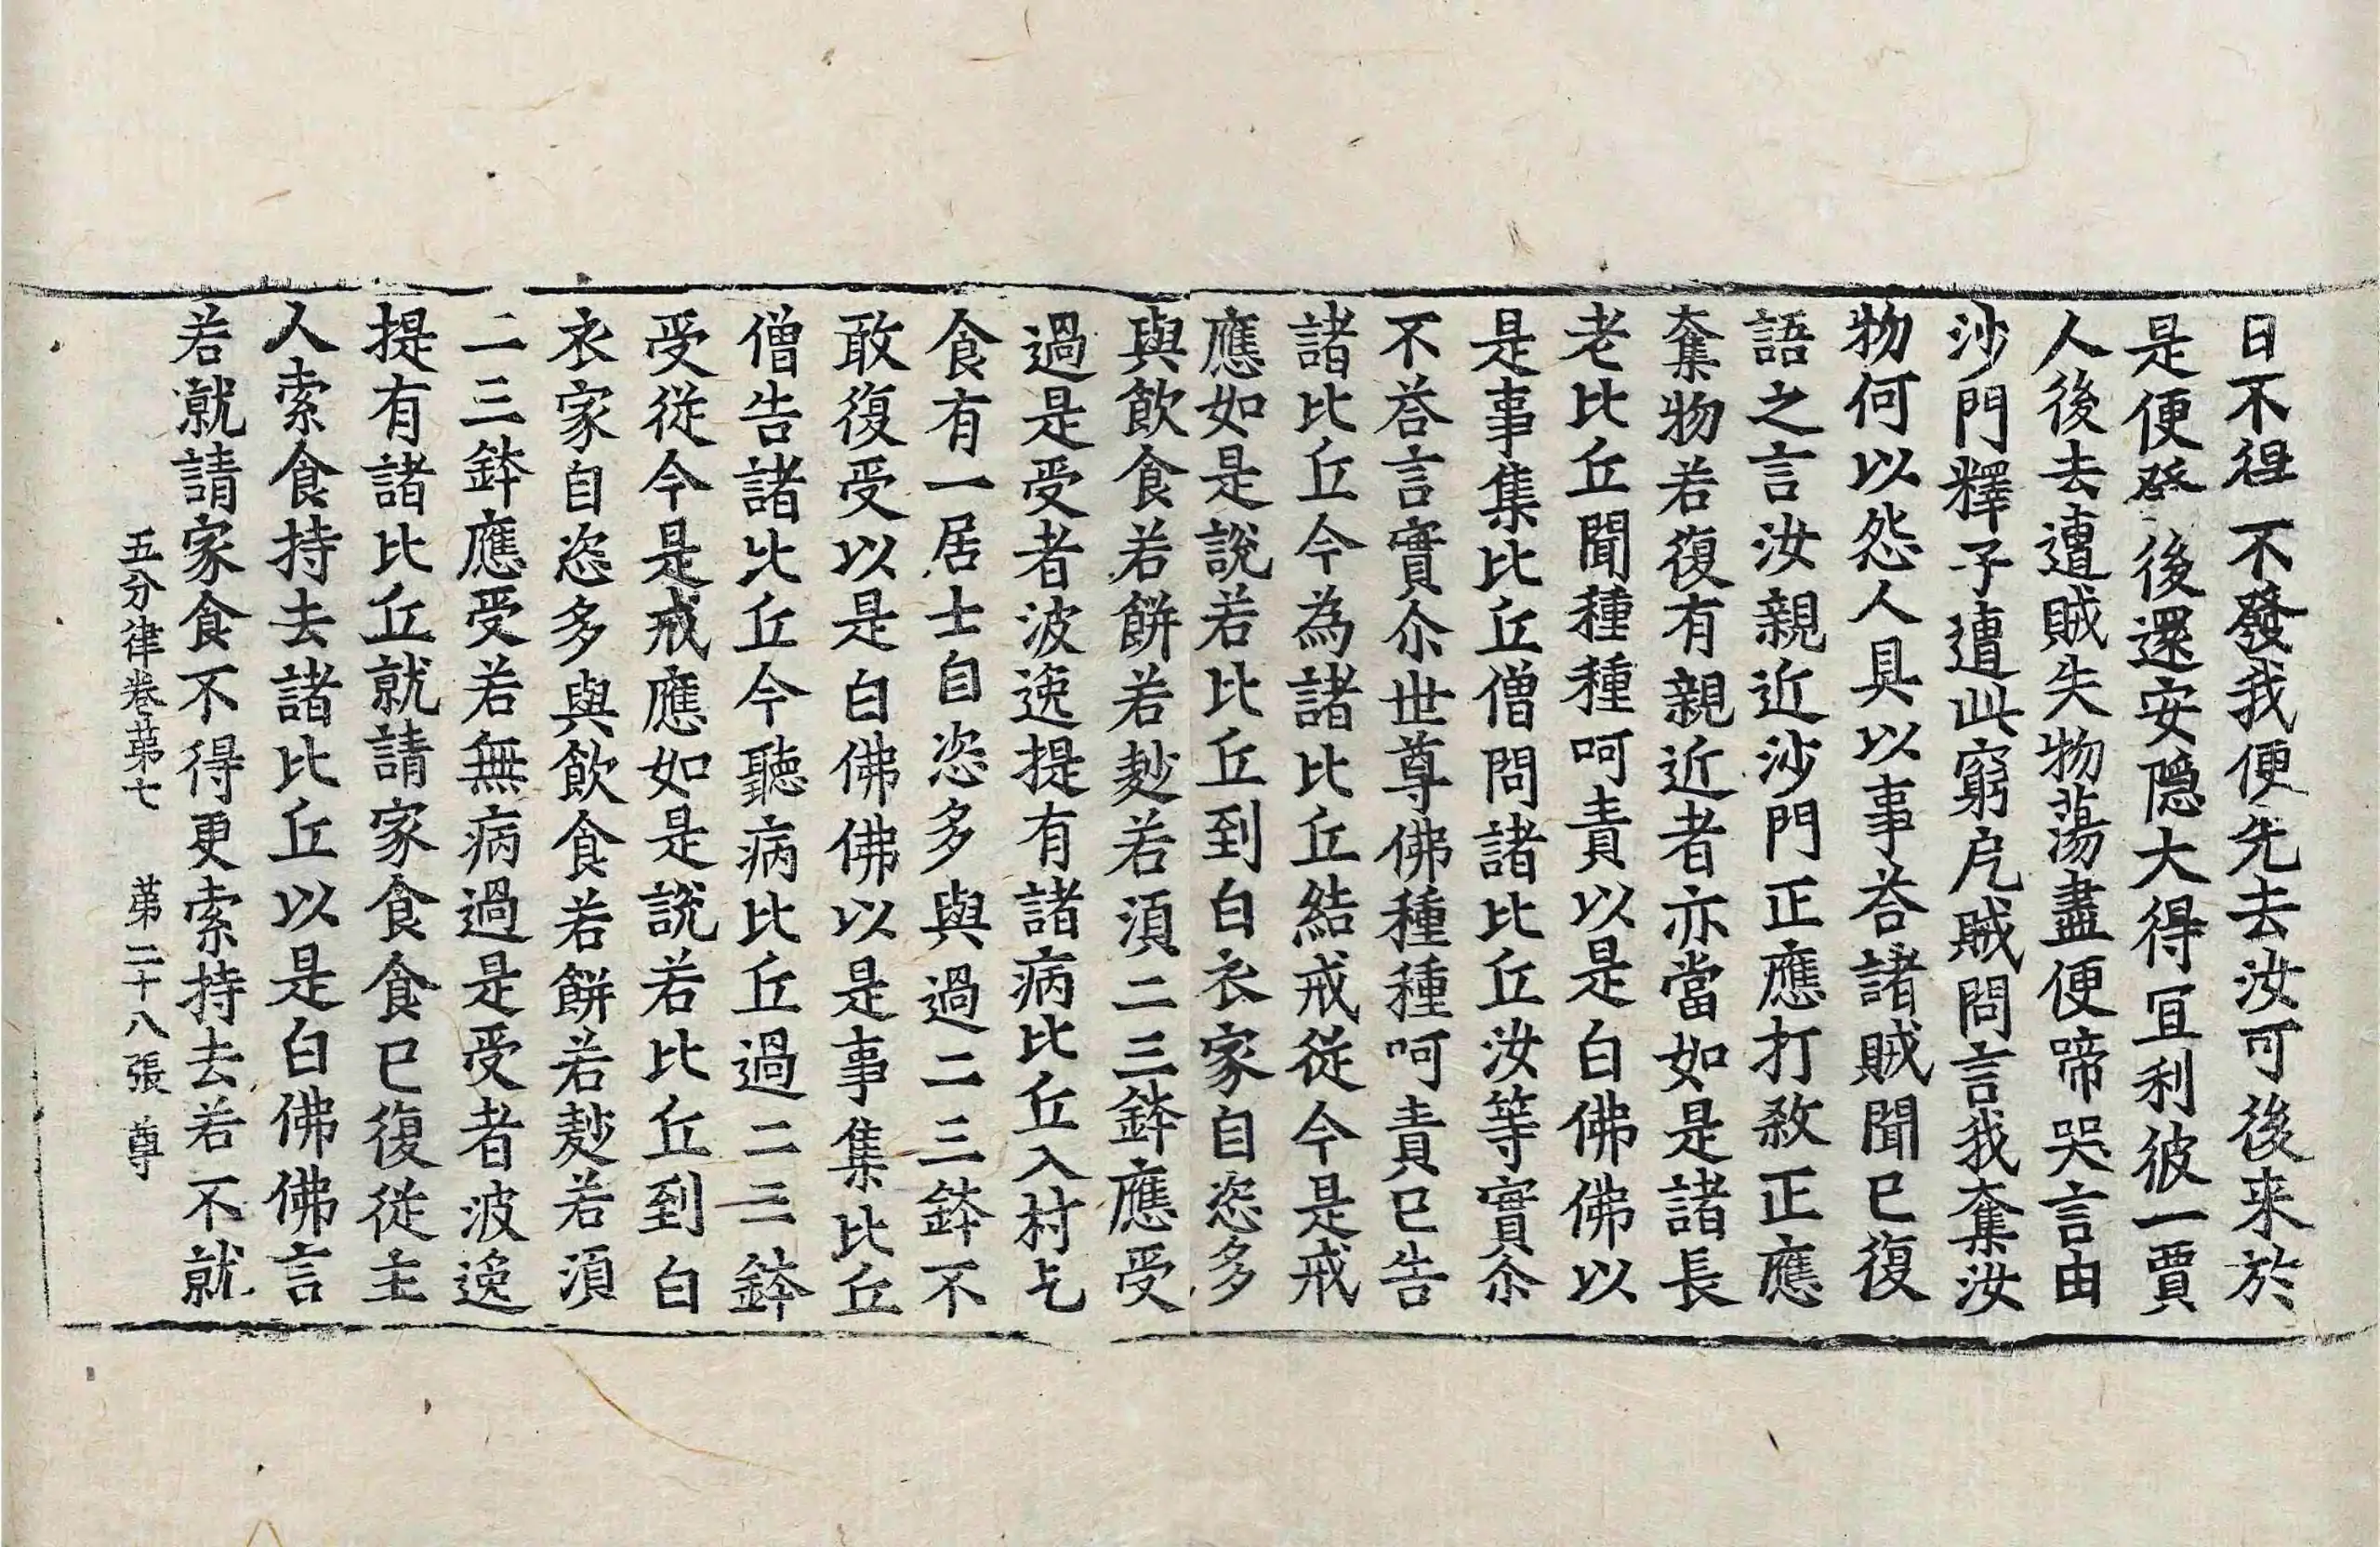 日不徃不發我便先去汝可後来於
是便發後還安隱大得冝利彼一賈
人後去遭賊失物蕩盡便啼哭言由
沙門釋子遭此窮厄賊問言我奪汝
物何以怨人具以事荅諸賊聞已復
語之言汝親近沙門正應打教正應
奪物若復有親近者亦當如是諸長
老比丘聞種種呵責以是白佛佛以
是事集比丘僧問諸比丘汝等實尒
不荅言實尒世尊佛種種呵責已告
諸比丘今為諸比丘結戒從今是戒
應如是說若比丘到白衣家自恣多
與飲食若餅若麨若湏二三鉢應受
過是受者波逸提有諸病比丘入村乞
食有一居士自恣多與過二三鉢不
敢復受以是白佛佛以是事集比丘
僧告諸比丘今聽病比丘過二三鉢
受從今是戒應如是說若比丘到白
衣家自恣多與飲食若餅若麨若湏
二三鉢應受若無病過是受者波逸
提有諸比丘就請家食食已復從主
人索食持去諸比丘以是白佛佛言
若就請家食不得更索持去若不就
五分律卷苐七　苐二十八張　尊